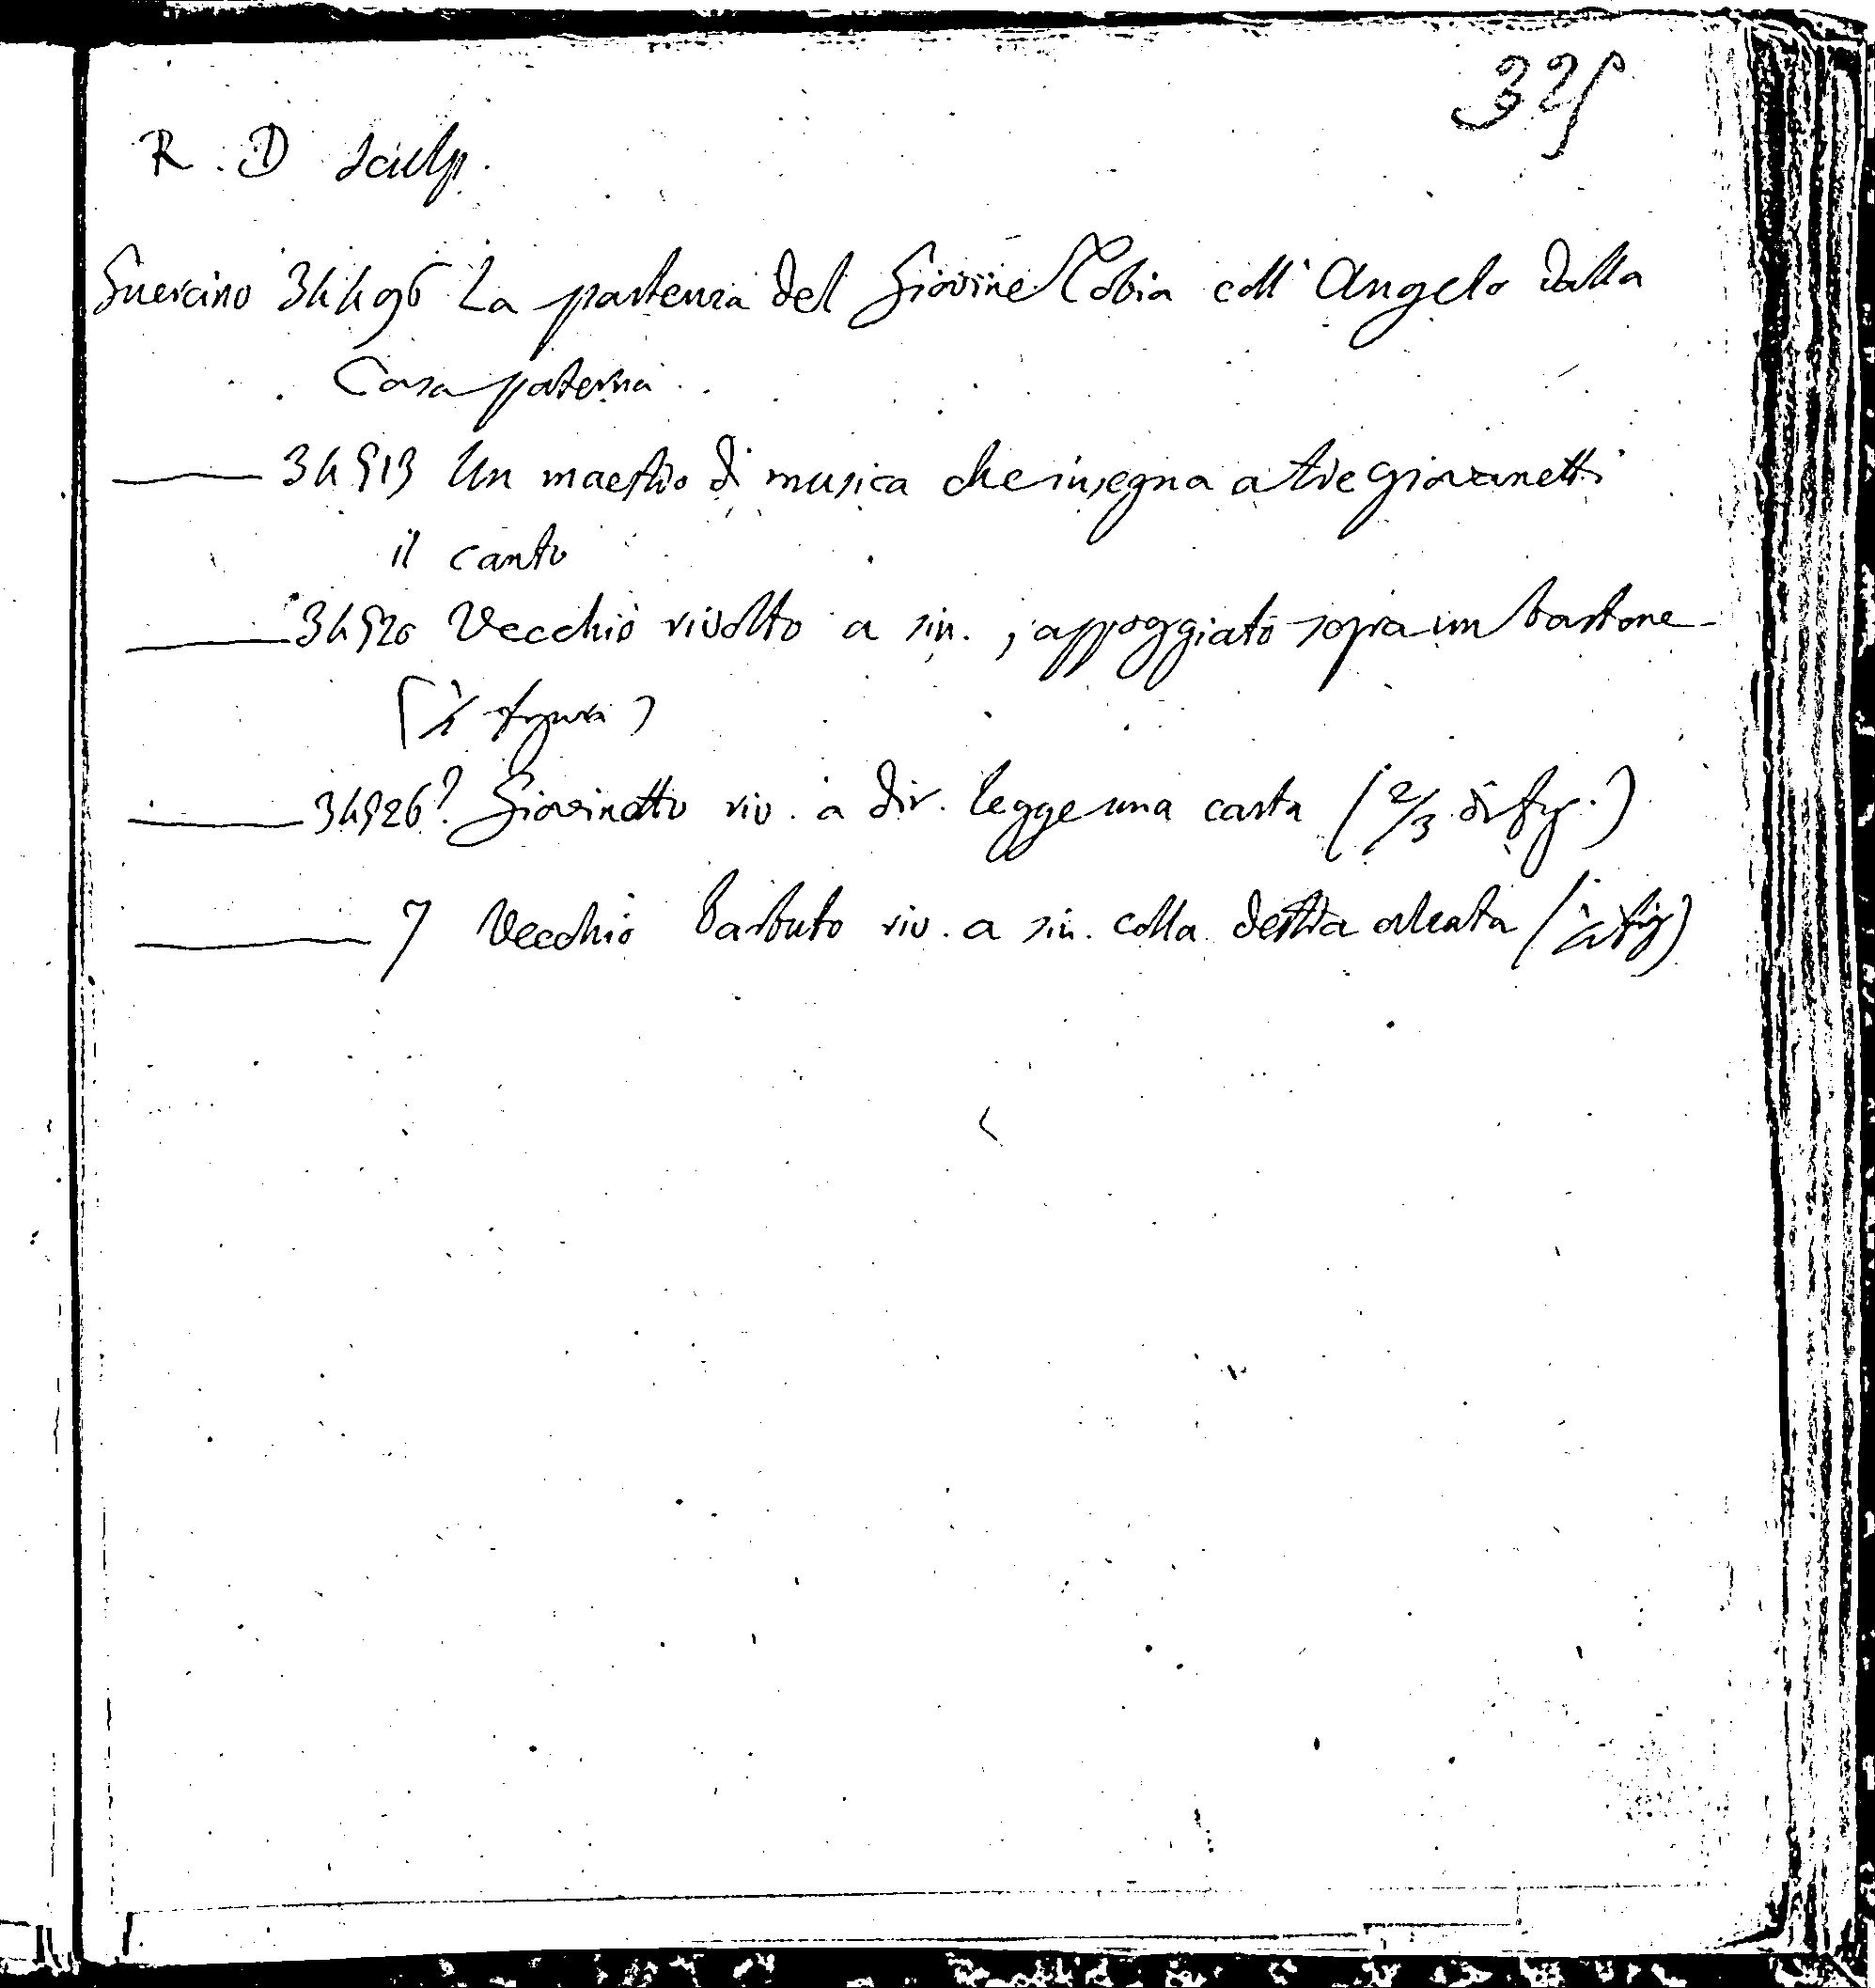 325
R. D sculp.
Guercino 34496 La partenza del Giovine Tobia coll' Angelo dalla
Casa paterna
34513 Un maestro di musica che insegna a tre giovanetti
il canto
34520 Vecchio rivolto a sin., appoggiato sopra un bastone
(½ figura)
34526? Giovinetto riv. a dir. legge una carta (2/3 di fig.)
7 Vecchio barbuto riv. a sin. colla destra alzata (½ fig)